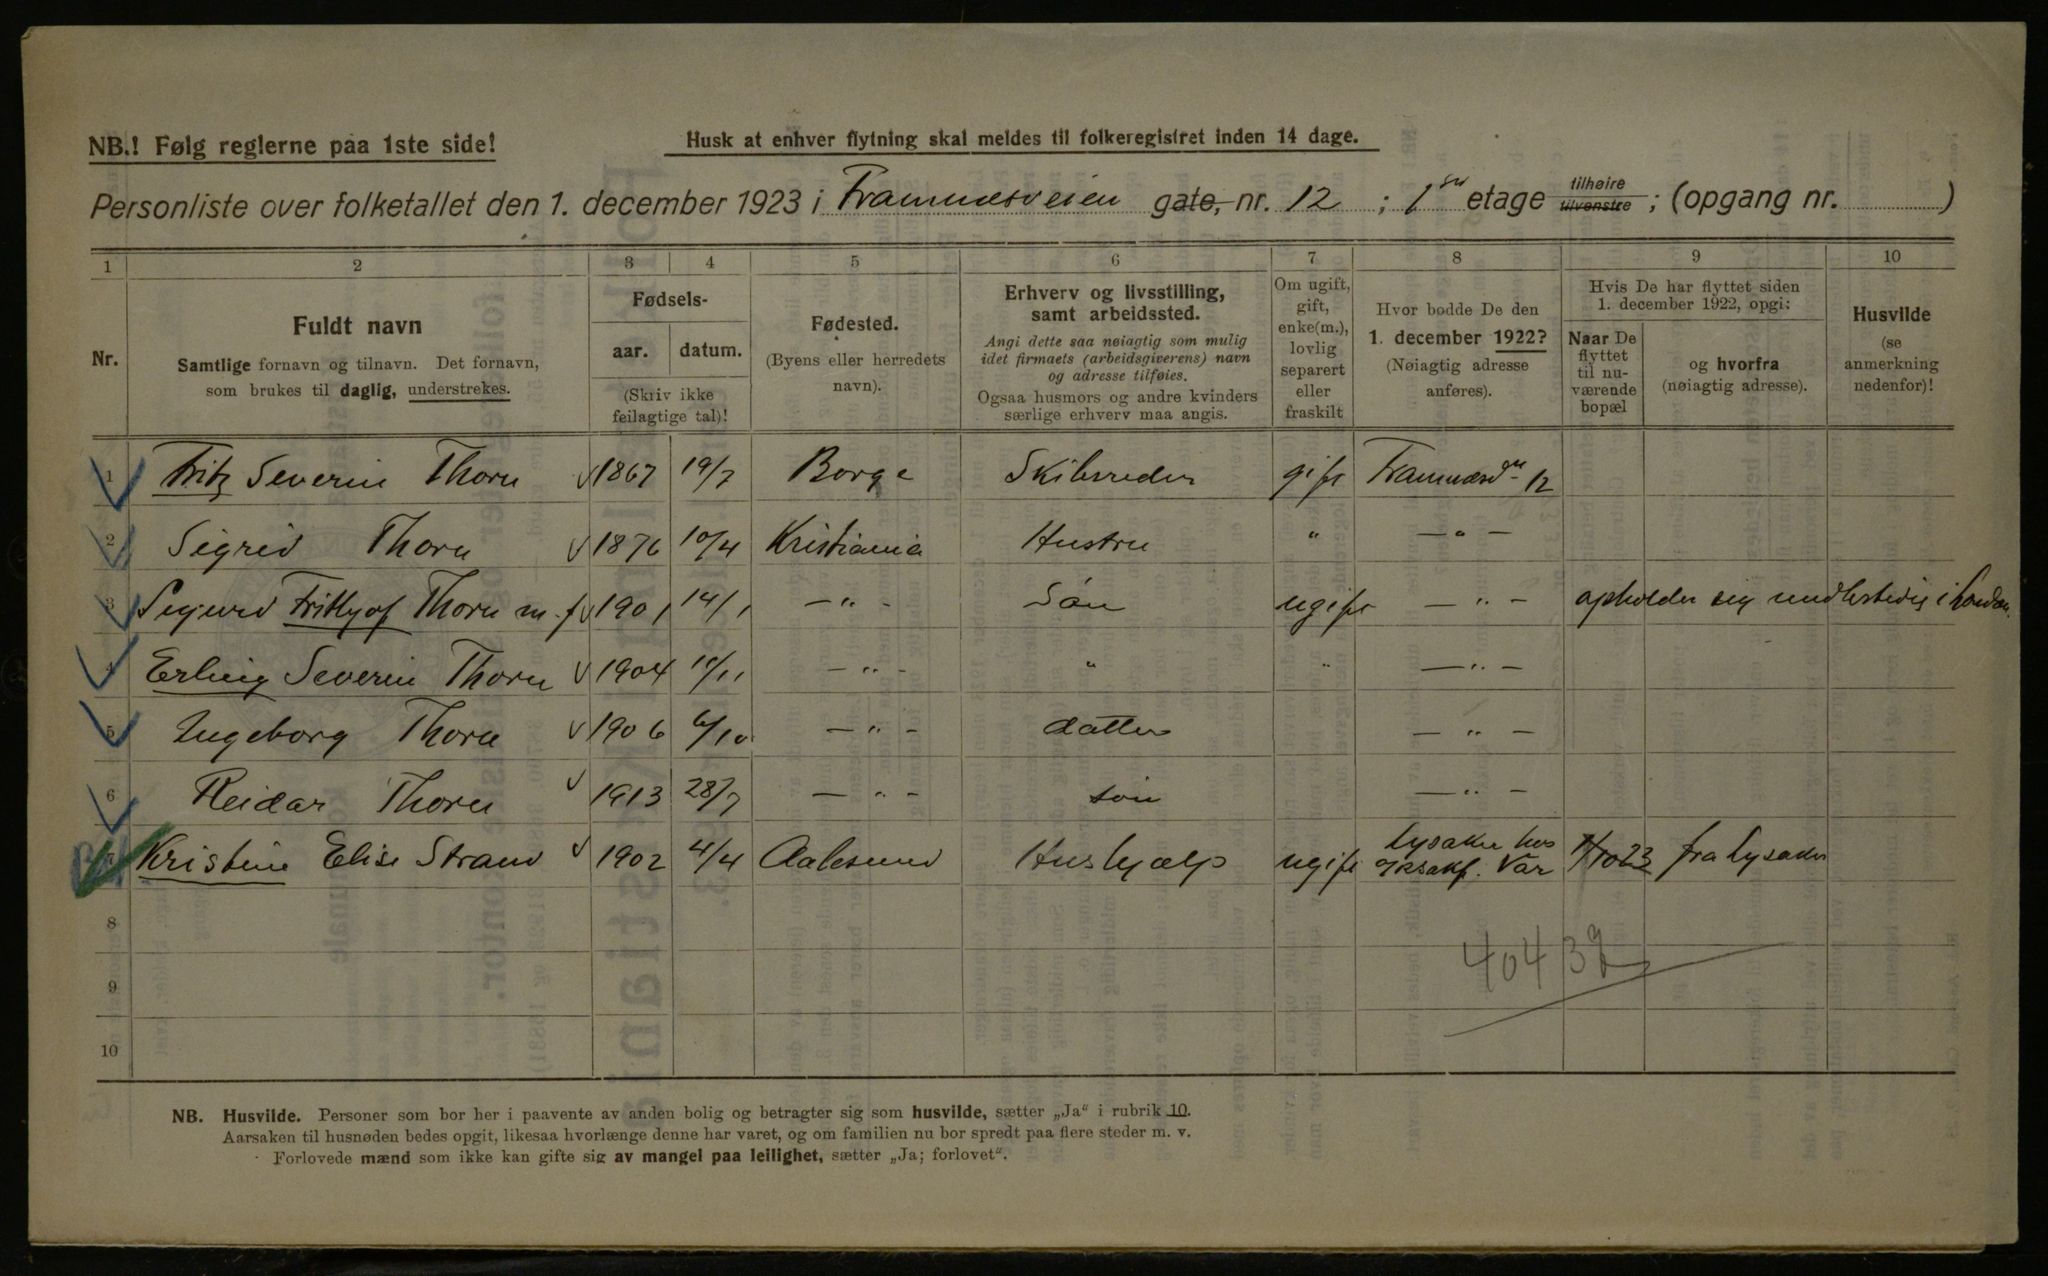 NB.! Følg reglerne paa 1ste side!
Husk at enhver flytning skal meldes til folkeregistret inden 14 dage.
Personliste over folketallet den 1. december 1923 i Framnæsveien gate, nr. 12 ; 1ste etage tilhøire tilvenstre ; (opgang nr. )
1 2 3 4 5 6 7 8 9 10
Nr.
Fuldt navn
Samtlige fornavn og tilnavn. Det fornavn,
som brukes til daglig, understrekes.
Fødsels-
aar. datum.
(Skriv ikke
feilagtige tal)!
Fødested.
(Byens eller herredets
navn).
Erhverv og livsstilling,
samt arbeidssted.
Angi dette saa nøiagtig som mulig
idet firmaets (arbeidsgiverens) navn
og adresse tilføies.
Ogsaa husmors og andre kvinders
særlige erhverv maa angis.
Om ugift,
gift,
enke(m.),
lovlig
separert
eller
fraskilt
Hvor bodde De den
1. december 1922?
(Nøiagtig adresse
anføres).
Hvis De har flyttet siden
1. december 1922, opgi:
Naar De
flyttet
til nu-
værende
bopæl
og hvorfra
(nøiagtig adresse).
Husvilde
(se
anmerkning
nedenfor)!
1 Fritz Severin Thorn 1867 19/7 Borge Skibsreder gift Framnæsv 12
2 Sigrid Thorn 1876 10/4 Kristiania Hustru " — " —
3 Sigurd Frithjof Thorn m. f 1901 14/1 — " — Søn ugift — " — opholder sig midlertidig i London
4 Erling Severin Thorn 1904 10/11 — " — " " — " —
5 Ingeborg Thorn 1906 6/10 — " — datter — " —
6 Reidar Thorn 1913 28/7 — " — søn — " —
7 Kristine Elise Strand 1902 4/4 Aalesund Hushjælp ugift Lysaker hos Oksakf. Vår 1/10 23 fra Lysaker
8
40432
9
10
NB. Husvilde. Personer som bor her i paavente av anden bolig og betragter sig som husvilde, sætter „Ja" i rubrik 10.
Aarsaken til husnøden bedes opgit, likesaa hvorlænge denne har varet, og om familien nu bor spredt paa flere steder m. v.
Forlovede mænd som ikke kan gifte sig av mangel paa leilighet, sætter „Ja; forlovet".